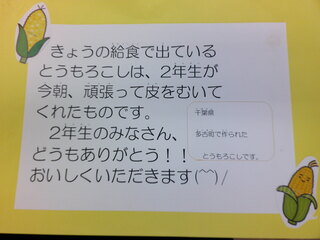 きょうの給食で出ている
とうもろこしは、2年生が
今朝、頑張って皮をむいて
くれたものです。
2年生のみなさん、
どうもありがとう！！
おいしくいただきます(^^)/
千葉県
多古町で作られた
とうもろこしです。